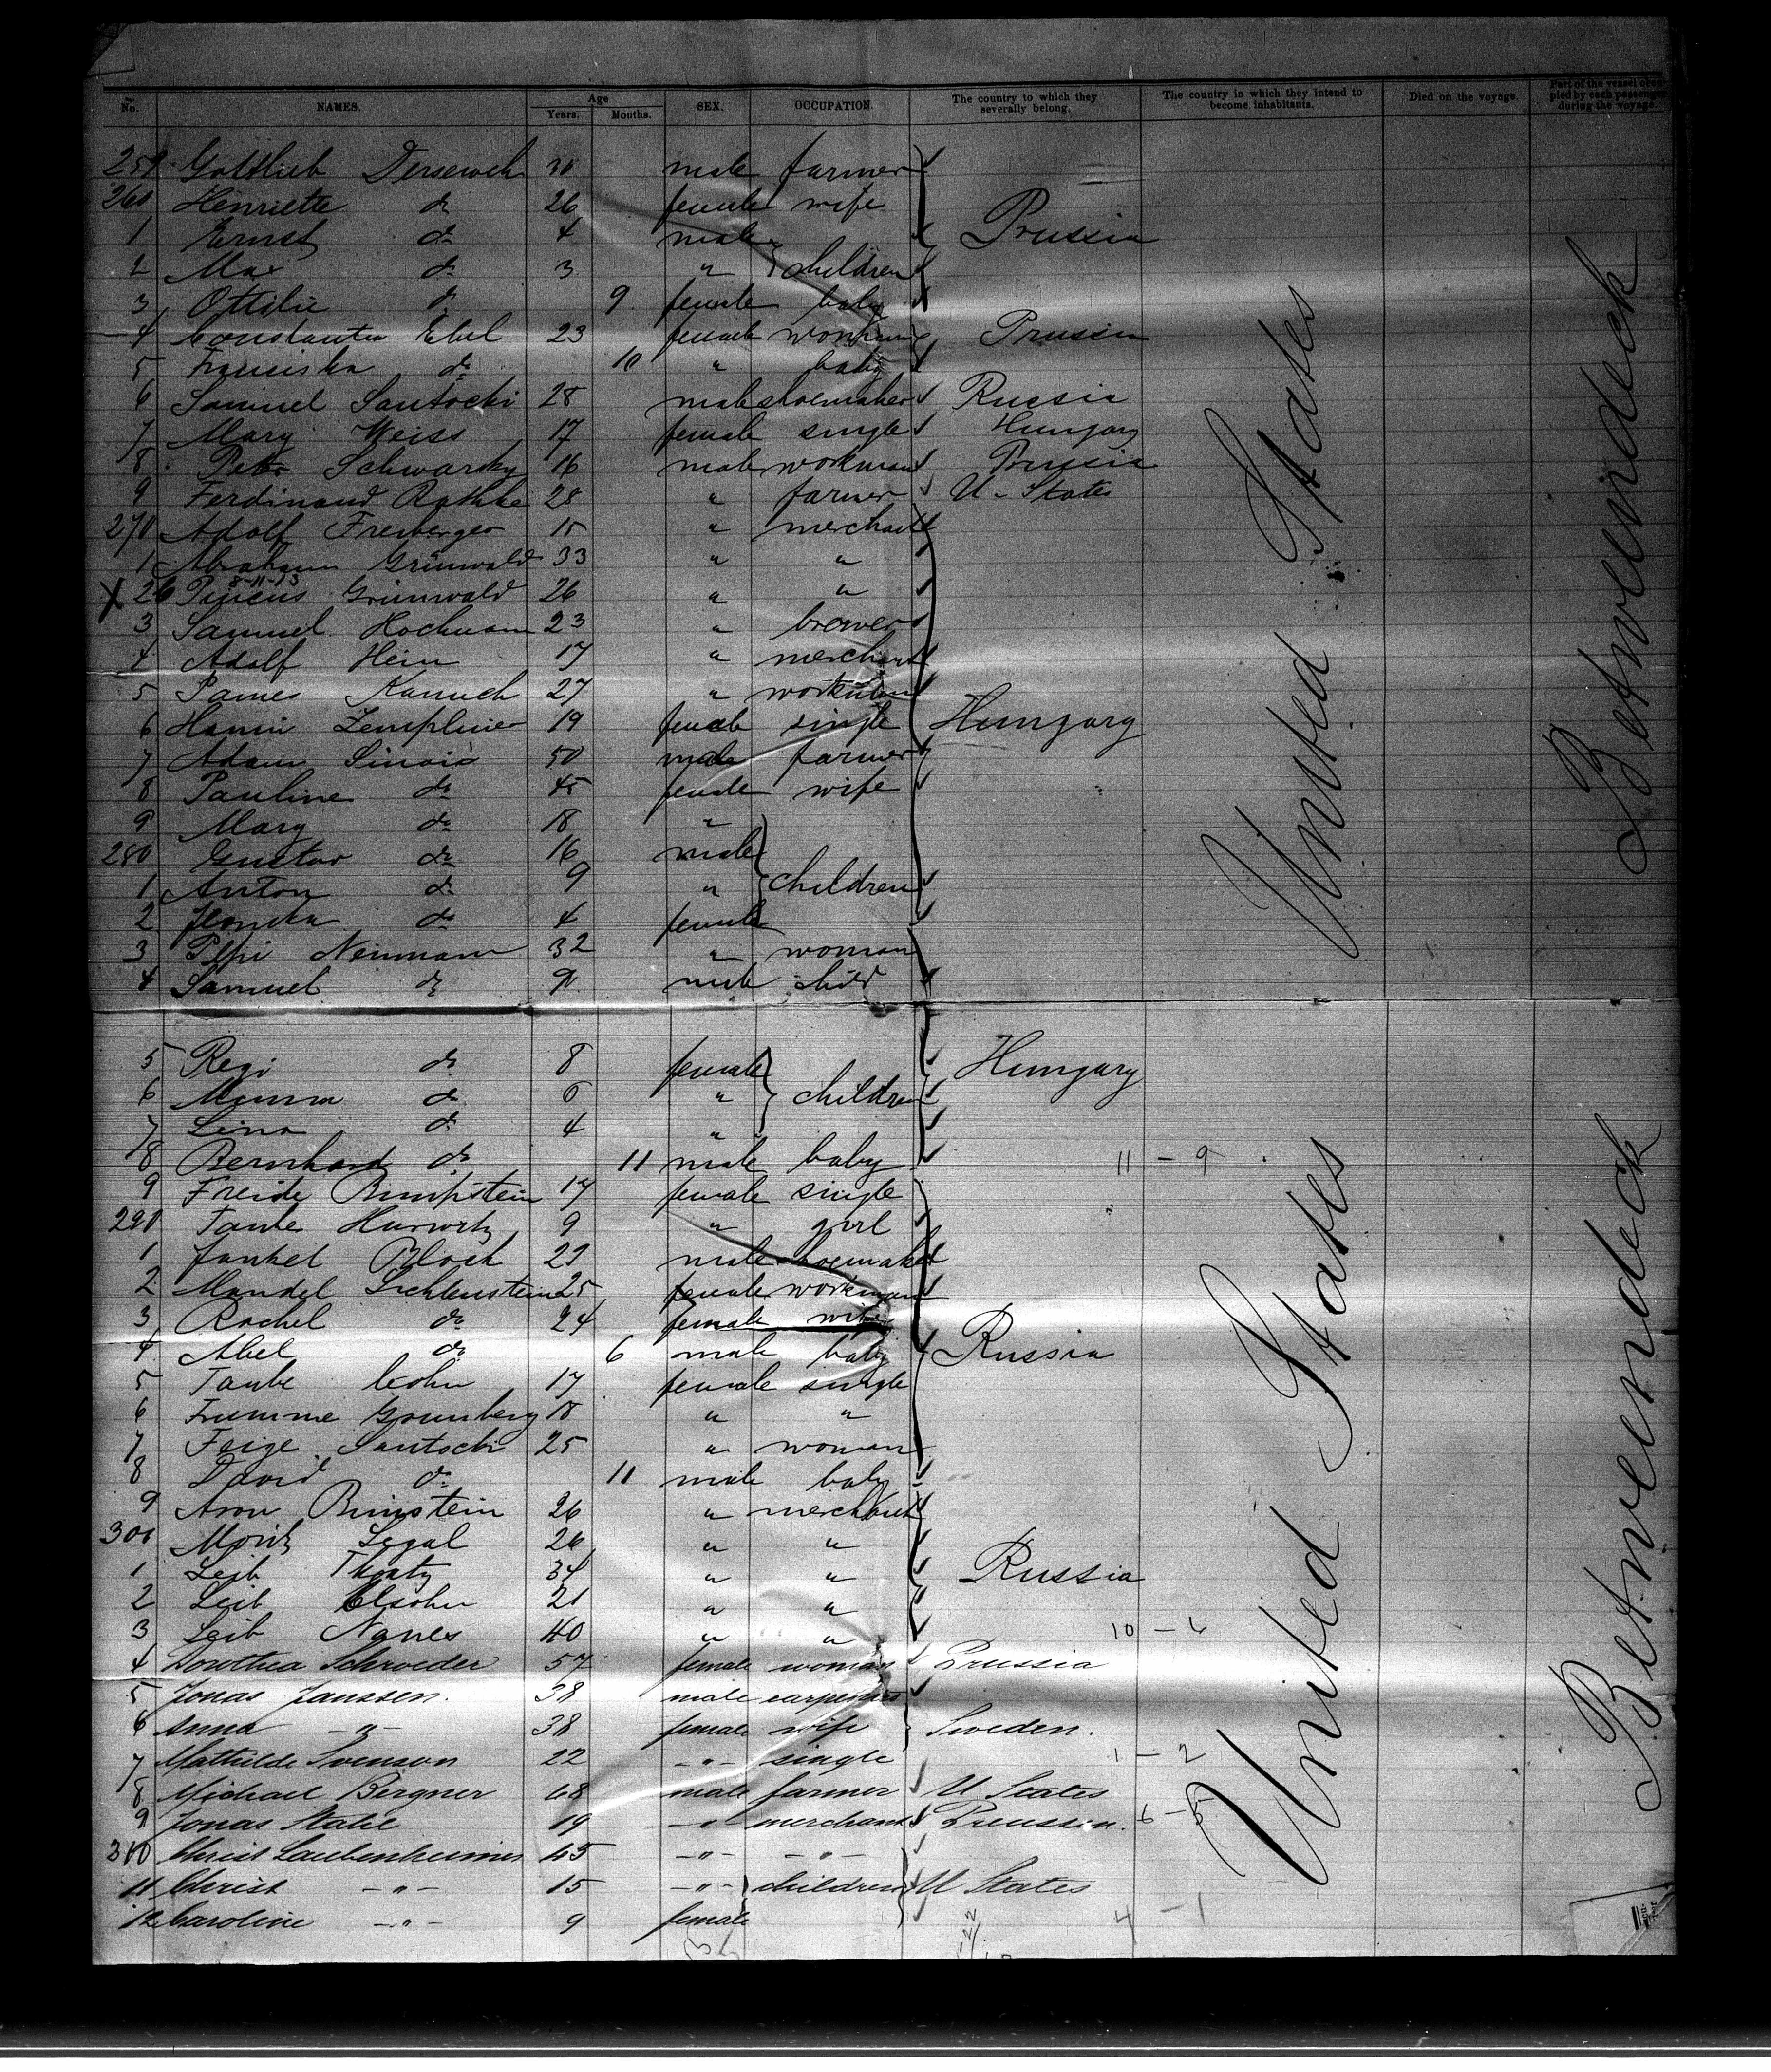 No. NAMES. Age Years. Months. SEX. OCCUPATION. The country to which they severally belong. The country in which they intend to become inhabitants. Died on the voyage. Part of the vessel occupied by each passenger during the voyage.
259 Gottlieb 30 male farmer
260 Henriette do 26 female wife Prussia
1 Ernst do 4 male
2 Max do 3 " children
3 Ottilie do 9 female baby
4 Constantia Ebel 23 female Prussia
5 Franziska do 10 " baby
6 Samuel Santocki 28 male shoemaker Russia
7 Mary Weiss 17 female single Hungary
8 Peter Schwarsky 16 male workman Prussia
9 Ferdinand Rathke 28 " farmer U-States
270 Adolf Freiberger 15 " merchant
1 Abraham Grünwald 33 " "
8-11-13
X 26 Pincus Grünwald 26 " "
3 Samuel 23 " brewer
4 Adolf Hein 17 " merchant
5 27 " workman
6 19 female single Hungary
7 Adam 50 male farmer
8 Pauline do 45 female wife
9 Mary do 18 "
280 Gustav do 16 male
1 Anton do 9 " children
2 do 4 female
3 Pepi Neumann 32 " woman
4 Samuel do 9 male child
5 Regi do 8 female Hungary
6 do 6 " children
7 Lina do 4 "
8 Bernhard do 11 male baby 11 - 9
9 Freide 17 female single
290 Taube Hurwitz 9 " girl
1 Jankel Bloch 29 male shoemaker
2 Mandel Lichtenstein 25 female workman
3 Rachel do 24 female wife
4 Abel do 6 male baby Russia
5 Taube Cohn 17 female single
6 Frumme Grunberg 18 " "
7 Feige 25 " woman
8 David do 11 male baby
9 Aron 26 " merchant
300 Moritz Segal 26 " "
1 Leib 34 " " Russia
2 Leib 21 " "
3 Leib Nanes 40 " " 10 - 6
4 Dorothea Schroeder 57 female woman Prussia
5 Jonas Janssen. 38 male carpenter
6 Anna -"- 38 female wife Sweden.
7 Mathilde Svenson 22 -"- single 1 - 2
8 Michael Bergner 48 male farmer U States
9 Jonas 19 -"- merchant Preussen. 6 - 5
310 Christ Laubenheimer 45 -"- -"-
11 Christ -"- 15 -"- children U States
12 Caroline -"- 9 female 4 - 1
United States
Betweendeck
United States
Betweendeck